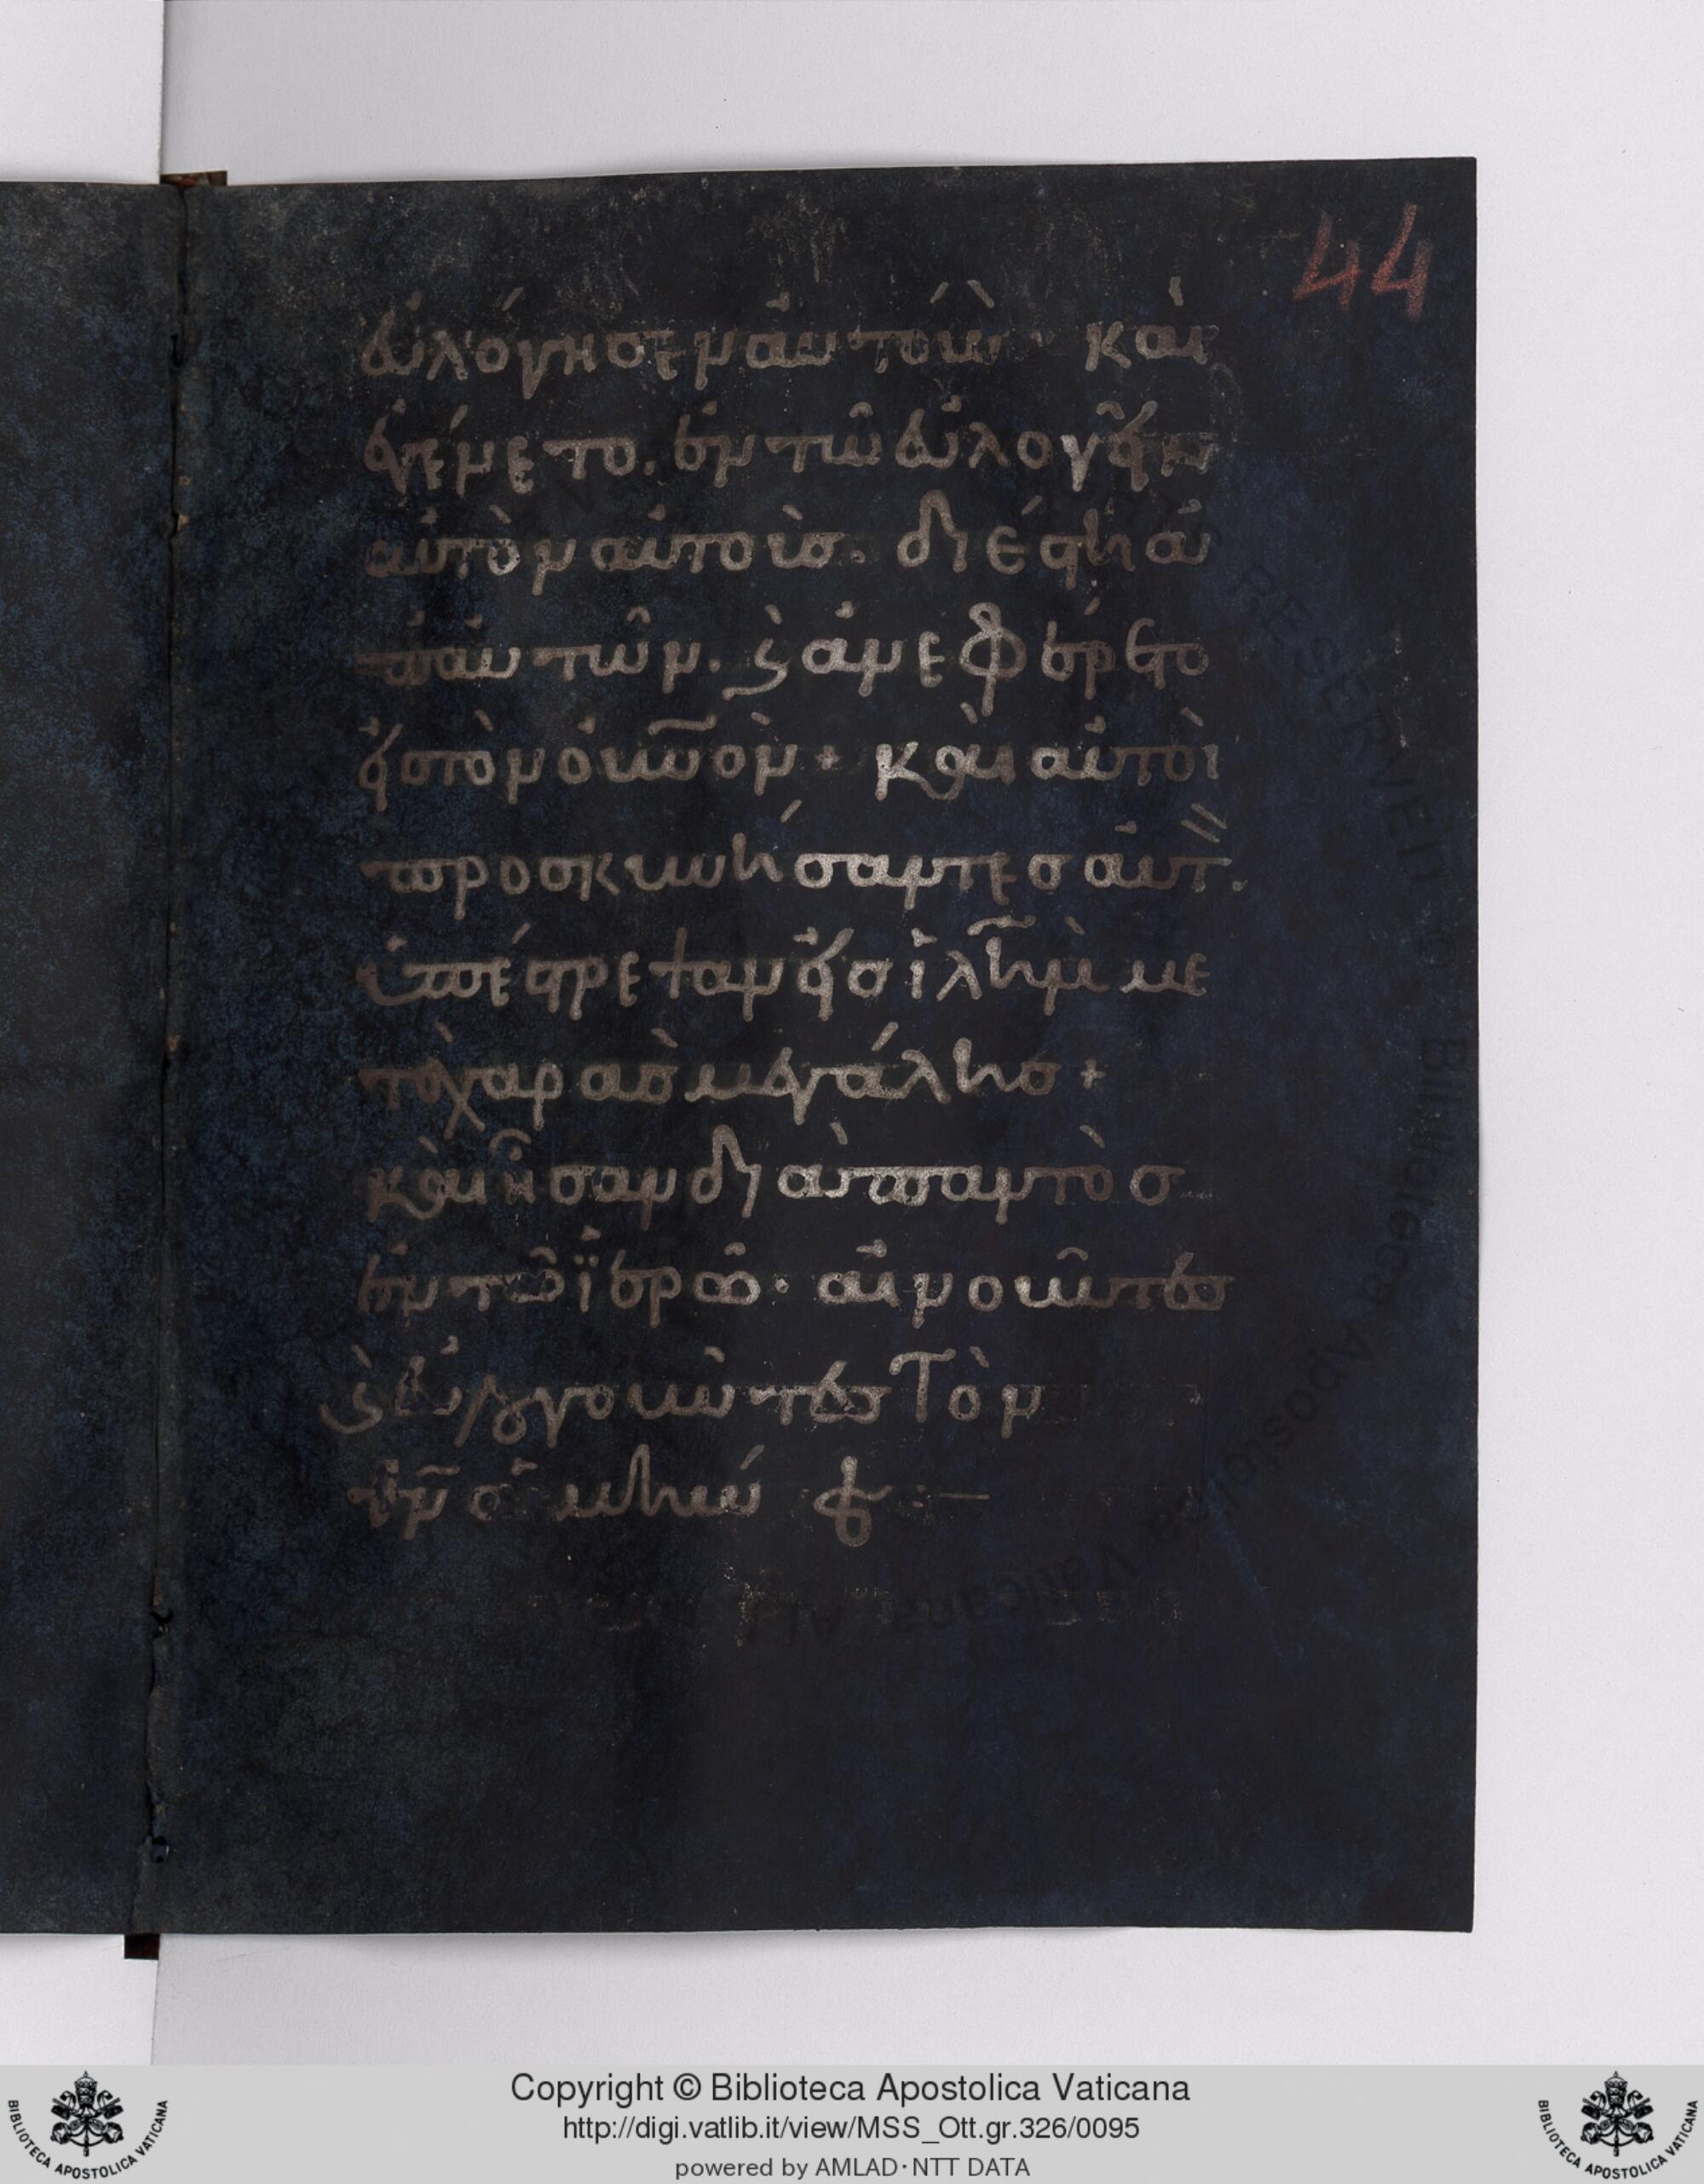 44
εὐλόγησεν αὐτούς· καὶ
ἐγένετο. ἐν τῶ εὐλογεῖν
αὐτὸν αὐτοὺσ. διέστη ἀ
π' αὐτῶν. ϛ ἀνεφέρετο
εἰσ τὸν οὐνον + καὶ αὐτοὶ
προσκυνήσαντεσ αὐτ.
ὑπέστρεψαν εἰσ ιλημ με
τὰ χαρᾶσ μεγάλησ +
καὶ ἦσαν διαπαντὸσ
ἐν τῶ ϊερῶ· αἰνοῦντεσ
ϛ εὐλογοῦντεσ Τὸν
θν ἀμήν
Copyright © Biblioteca Apostolica Vaticana
http://digi.vatlib.it/view/MSS_Ott.gr.326/0095
powered by AMLAD·NTT DATA
BIBLIOTECA APOSTOLICA VATICANA
BIBLIOTECA APOSTOLICA VATICANA